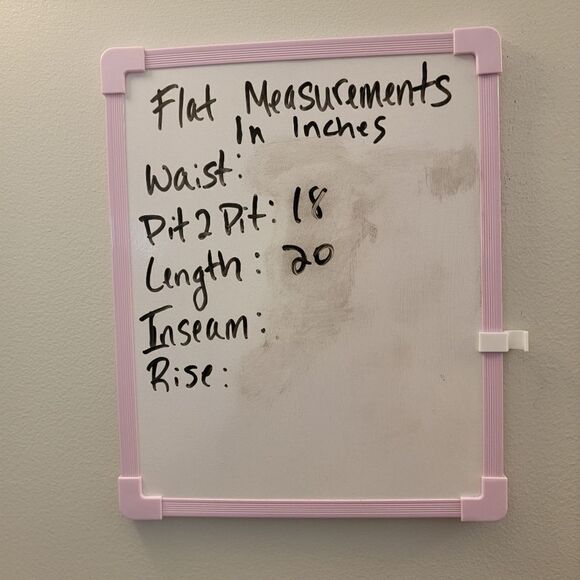 Flat Measurements
In Inches
Waist:
Pit 2 Pit: 18
Length: 20
Inseam:
Rise: